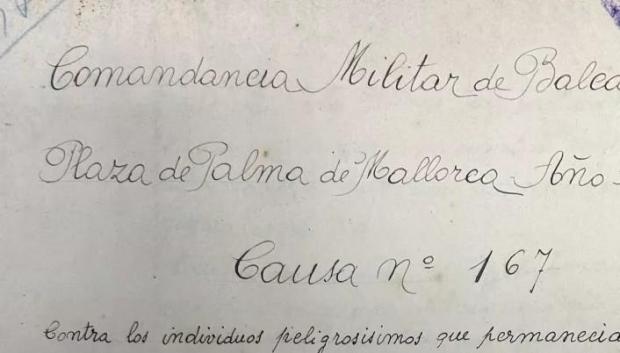 Comandancia Militar de Balea
Plaza de Palma de Mallorca Año
Causa nº 167
Contra los individuos peligrosisimos que permanecia